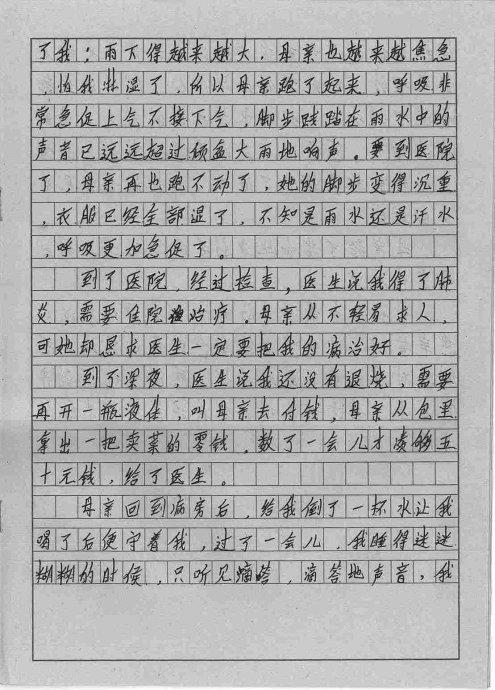 了我；雨下得越来越大，母亲也越来越焦急
，怕我淋湿了，所以母亲跑了起来，呼吸非
常急促上气不接下气，脚步践踏在雨水中的
声音已远远超过倾盆大雨地响声。要到医院
了，母亲再也跑不动了，她的脚步变得沉重
，衣服已经全部湿了，不知是雨水还是汗水
，呼吸更加急促了。
到了医院，经过检查，医生说我得了肺
炎，需要住院治疗。母亲从不轻易求人，
可她却恳求医生一定要把我的病治好。
到了深夜，医生说我还没有退烧，需要
再开一瓶液体，叫母亲去付钱，母亲从包里
拿出一把卖菜的零钱，数了一会儿才凑够五
十元钱，给了医生。
母亲回到病房后，给我倒了一杯水让我
喝了后便守着我，过了一会儿，我睡得迷迷
糊糊的时候，只听见嘀嗒，滴答地声音，我